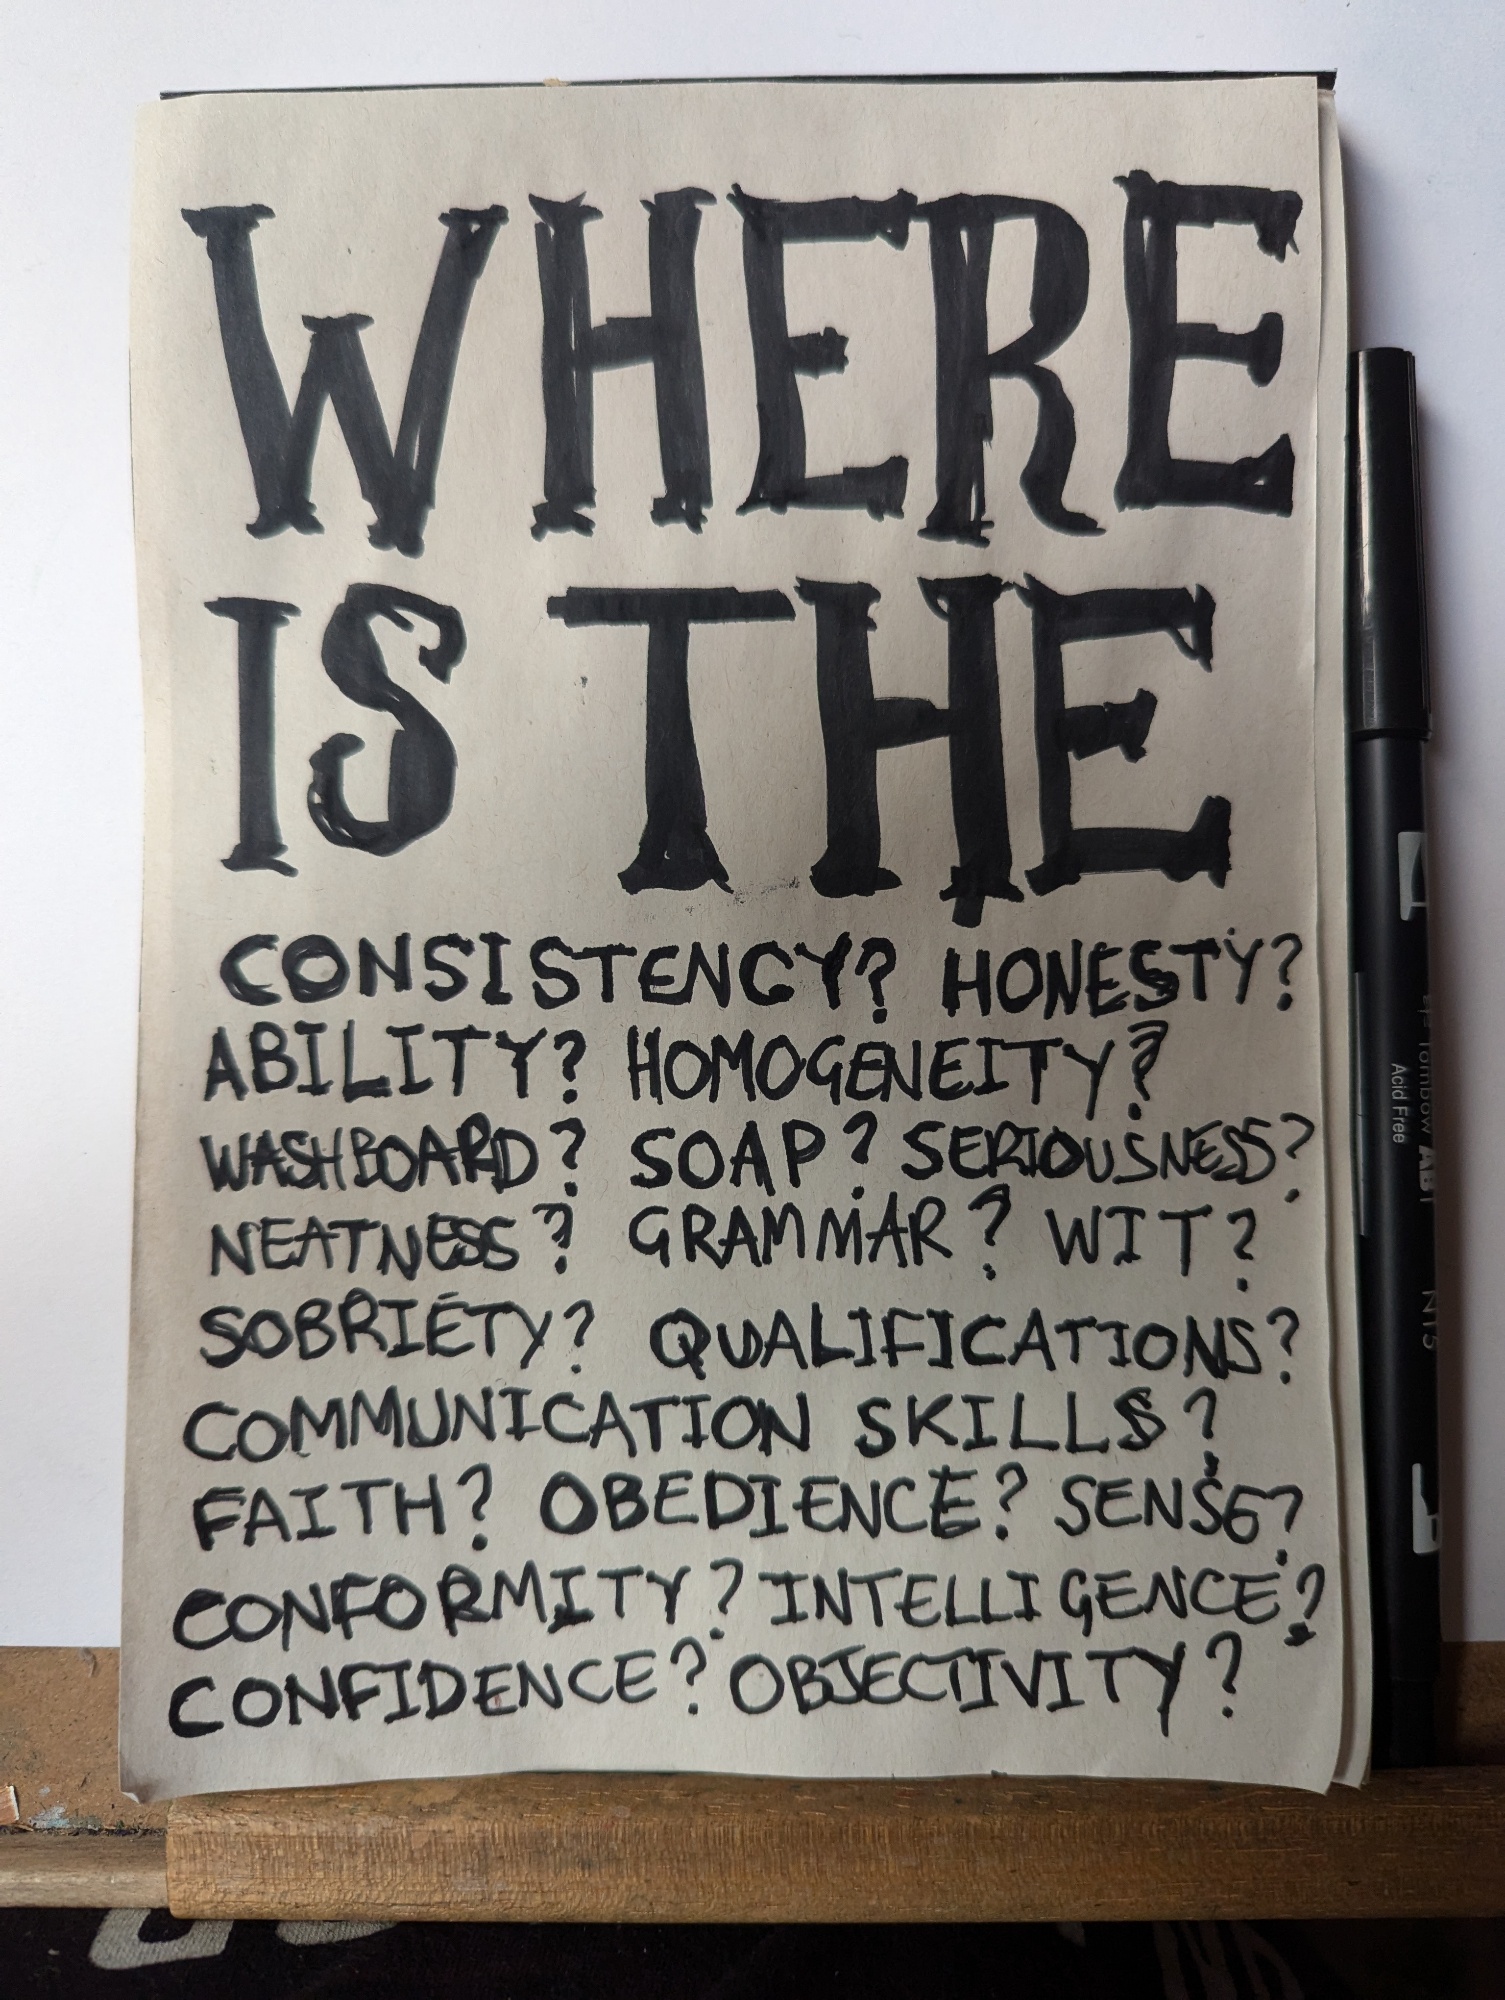 WHERE
IS THE
CONSISTENCY? HONESTY?
ABILITY? HOMOGENEITY?
WASHBOARD? SOAP? SERIOUSNESS?
NEATNESS? GRAMMAR? WIT?
SOBRIETY? QUALIFICATIONS?
COMMUNICATION SKILLS?
FAITH? OBEDIENCE? SENSE?
CONFORMITY? INTELLIGENCE?
CONFIDENCE? OBJECTIVITY?
Tombow ABT N15
Acid Free